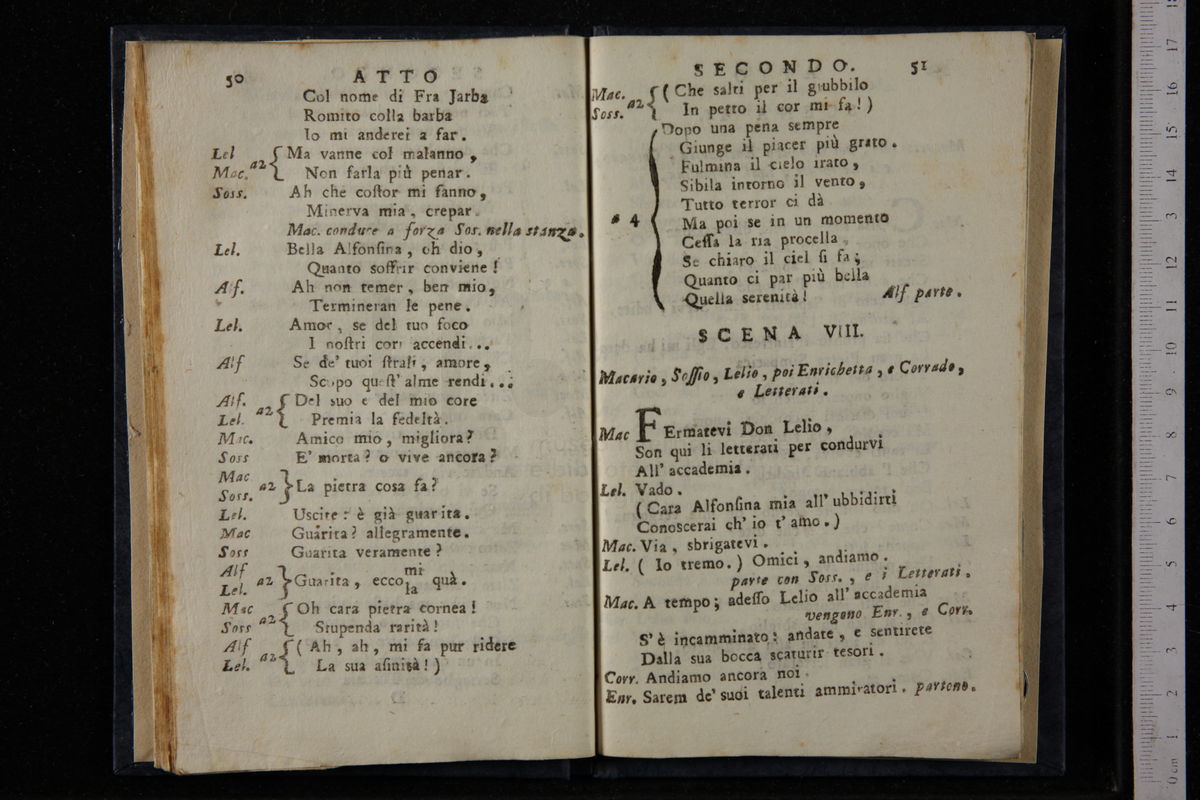 50 ATTO
Col nome di Fra Jarba
Romito colla barba
Io mi anderei a far.
Lel Ma vanne col malanno,
Mac. a2 Non farla più penar.
Soss. Ah che coſtor mi fanno,
Minerva mia, crepar.
Mac. conduce a forza Sos. nella stanza.
Lel. Bella Alfonſina, oh dio,
Quanto soffrir conviene!
Alf. Ah non temer, ben mio,
Termineran le pene.
Lel. Amor, se del tuo foco
I noſtri cori accendi...
Alf Se de' tuoi ſtrali, amore,
Scopo queſt' alme rendi...
Alf. Del suo e del mio core
Lel. a2 Premia la fedeltà.
Mac. Amico mio, migliora?
Soss E' morta? o vive ancora?
Mac
Soss. a2 La pietra cosa fa?
Lel. Uscite: è già guarita.
Mac Guarita? allegramente.
Soss Guarita veramente?
Alf mi
Lel. a2 Guarita, ecco la quà.
Mac Oh cara pietra cornea!
Soss a2 Stupenda rarità!
Alf (Ah, ah, mi fa pur ridere
Lel. a2 La sua aſinità!)
SECONDO. 51
Mac. (Che salti per il giubbilo
Soss. a2 In petto il cor mi fa!)
Dopo una pena sempre
Giunge il piacer più grato.
Fulmina il cielo irato,
Sibila intorno il vento,
Tutto terror ci dà
a 4 Ma poi se in un momento
Ceſſa la ria procella,
Se chiaro il ciel ſi fa;
Quanto ci par più bella
Quella serenità! Alf parte.
SCENA VIII.
Macario, Soſſio, Lelio, poi Enrichetta, e Corrado,
e Letterati.
Mac FErmatevi Don Lelio,
Son qui li letterati per condurvi
All' accademia.
Lel. Vado.
(Cara Alfonſina mia all' ubbidirti
Conoscerai ch' io t' amo.)
Mac. Via, sbrigatevi.
Lel. (Io tremo.) Omici, andiamo.
parte con Soss., e i Letterati.
Mac. A tempo; adeſſo Lelio all' accademia
vengono Enr., e Corr.
S'è incamminato; andate, e sentirete
Dalla sua bocca scaturir tesori.
Corr. Andiamo ancora noi.
Enr. Sarem de' suoi talenti ammiratori. partono.